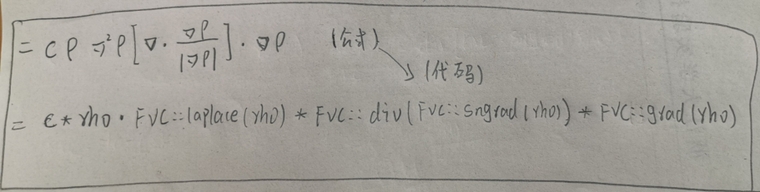 = C ρ ∇²ρ [∇ · ∇ρ/|∇ρ|] · ∇ρ (公式)
(代码)
= C * rho · FVC::laplace(rho) * FVC::div(FVC::sngrad(rho)) * FVC::grad(rho)